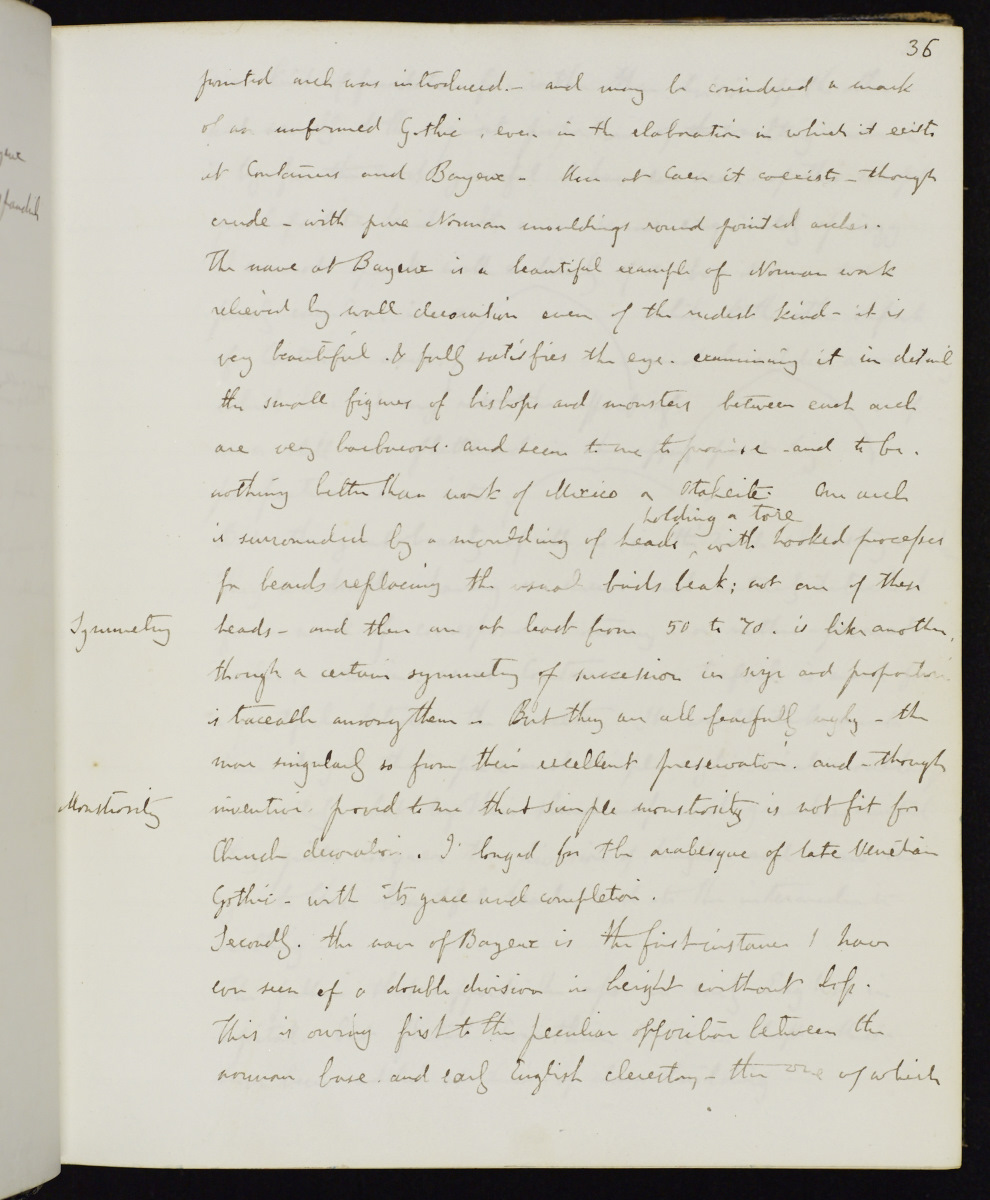 36
pointed arch was introduced. - and may be considered a mark
of an unformed Gothic, even in the elaboration in which it exists
at Coutances and Bayeux - Here at Caen it coexists - though
crude - with pure Norman mouldings round pointed arches.
The nave at Bayeux is a beautiful example of Norman work
relieved by wall decoration even of the rudest kind - it is
very beautiful. & fully satisfies the eye. examining it in detail
the small figures of bishops and monsters between each arch
are very barbarous. and seem to me to promise - and to be.
nothing better than work of Mexico or Otaheite. One arch
holding a tore
is surrounded by a moulding of heads, with hooked processes
for beards replacing the usual birds beak; not one of these
Symmetry
heads - and there are at least from 50 to 70. is like another,
though a certain symmetry of succession in size and proportion
is traceable among them - But they are all fearfully ugly - the
more singularly so from their excellent preservation. and - though
Monstrosity
inventive. proved to me that simple monstrosity is not fit for
Church decoration. I longed for the arabesque of late Venetian
Gothic - with its grace and completion.
Secondly. the nave of Bayeux is the first instance I have
ever seen of a double division in height without loss.
This is owing first to the peculiar opposition between the
norman base. and early English clerestory - the one of which